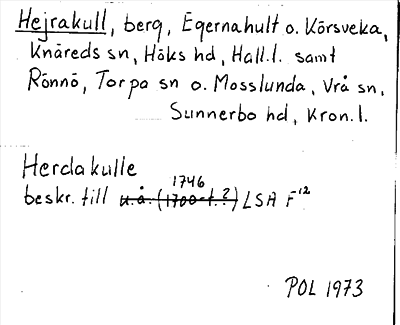 Hejrakull, berg, Egernahult o. Körsveka,
Knäreds sn, Höks hd, Hall.l. samt
Rönnö, Torpa sn o. Mosslunda, Vrå sn,
Sunnerbo hd, Kron.l.
Herdakulle
1746
beskr. till u.å. (1700-t.?) LSA F¹²
POL 1973